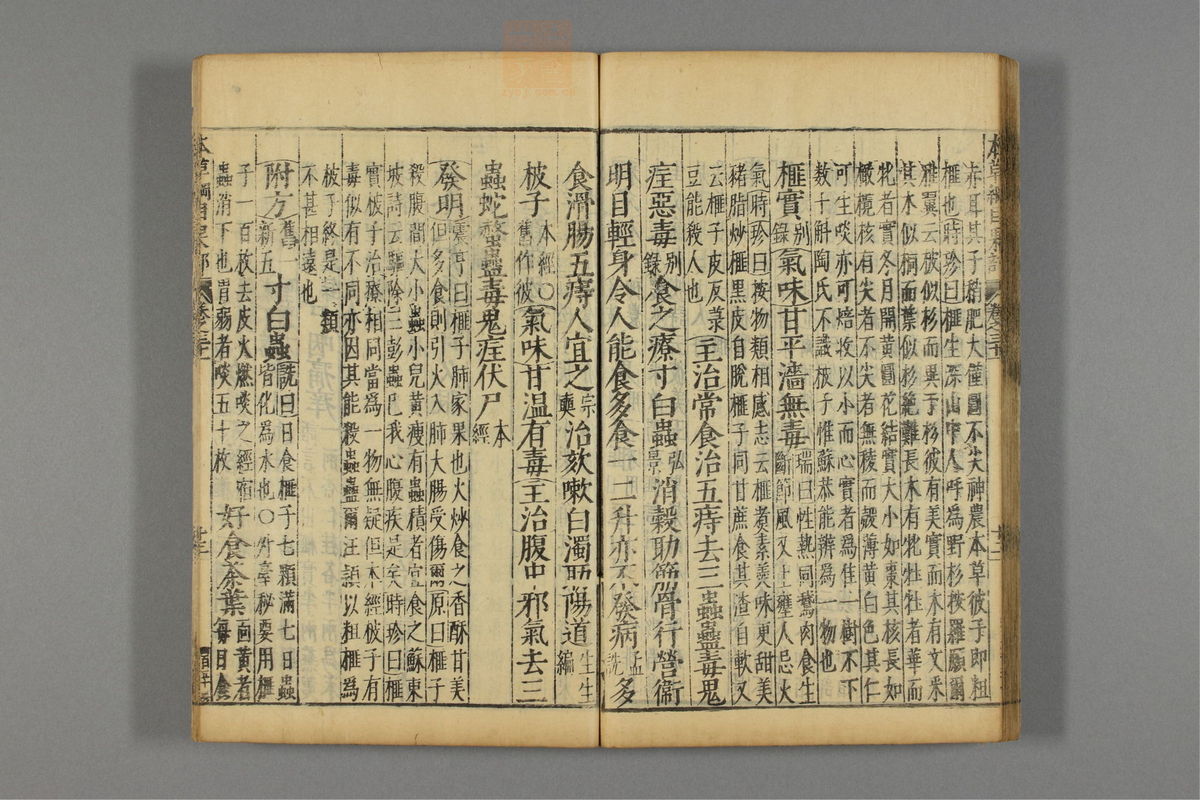 赤耳其子稍肥大僅圓不尖神農本草彼子即粗
榧也時珍曰榧生深山中人呼為野杉按羅願爾
雅翼云柀似杉而異于杉彼有美實而木有文采
其木似桐而葉似杉絶難長木有牝牡牡者華而
牝者實冬月開黃圓花結實大小如棗其核長如
橄欖核有尖者不尖者無稜而殼薄黃白色其仁
可生啖亦可焙收以小而心實者為佳一樹不下
数十斛陶氏不識柀子惟蘇恭能辨為一物也
榧實別錄氣味甘平濇無毒瑞曰性熱同鵝肉食生
斷節風又上壅人忌火
氣時珍曰按物類相感志云榧煮素羹味更甜美
猪脂炒榧黒皮自脫榧子同甘蔗食其渣自軟又
云榧子皮反菉
豆能殺人也
主治常食治五痔去三蟲蠱毒鬼
疰惡毒別錄食之療寸白蟲弘景消穀助筋骨行營衞
明目輕身令人能食多食一二升亦不發病孟詵多
食滑腸五痔人宜之宗奭治欬嗽白濁助陽道生生編
柀子本經〇舊作彼氣味甘温有毒主治腹中邪氣去三
蟲蛇螫蠱毒鬼疰伏尸本經
發明震亨曰榧子肺家果也火炒食之香酥甘美
但多食則引火入肺大腸受傷爾原曰榧子
殺腹間大小蟲小兒黃瘦有蟲積者宜食之蘇東
坡詩云驅除三彭蟲已我心腹疾是矣時珍曰榧
實柀子治療相同當為一物無疑但本經柀子有
毒似有不同亦因其能殺蟲蠱爾汪頴以粗榧為
柀子終是一類
不甚相遠也
附方舊一新五寸白蟲詵曰日食榧子七顆滿七日蟲
皆化為水也〇外臺秘要用榧
子一百枚去皮火燃啖之經宿
蟲消下也胃弱者啖五十枚
好食茶葉面黄者
每日食
本草綱目果部
卷之三十一
廿二
廿三